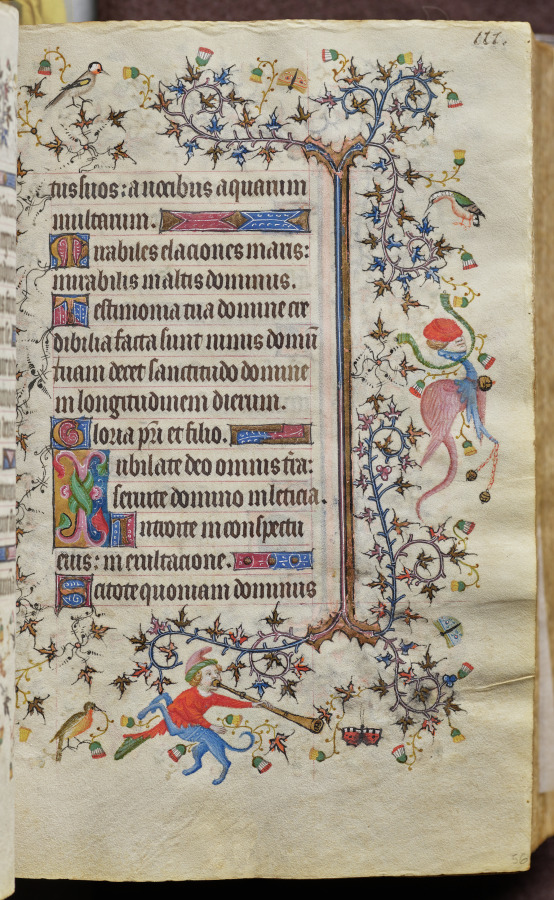 111.
tus suos: a vocibus aquarum
multarum.
Mirabiles elaciones maris:
mirabilis in altis dominus.
Testimonia tua domine cre
dibilia facta sunt nimis domū
tuam decet sanctitudo domine
in longitudinem dierum.
Gloria pr̄i et filio.
Iubilate deo omnis tr̄a:
servite domino in leticia.
Introite in conspectu
eius: in exultacione.
Scitote quoniam dominus
58